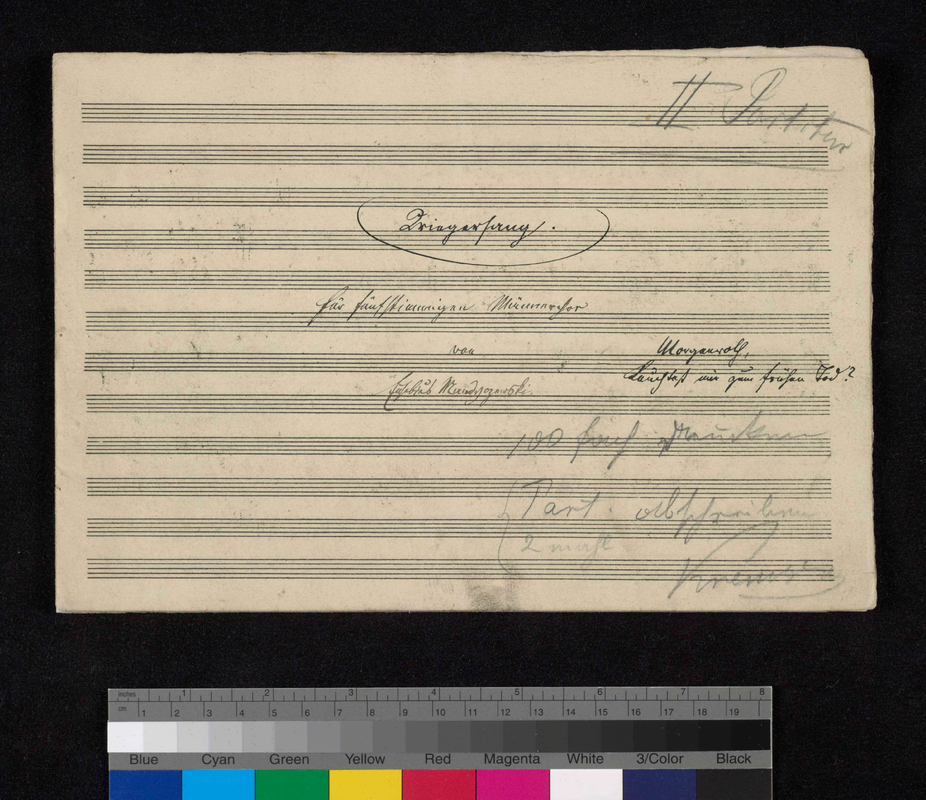 II Partitur
Kriegersang.
für fünfstimmigen Männerchor
von
Eusebius Mandyczewski
Morgenroth,
Leuchtest mir zum frühen Tod?
100 fach drucken
Part. abschreiben
2 mahl
Kremser
inches 1 2 3 4 5 6 7 8
cm 1 2 3 4 5 6 7 8 9 10 11 12 13 14 15 16 17 18 19
Blue Cyan Green Yellow Red Magenta White 3/Color Black